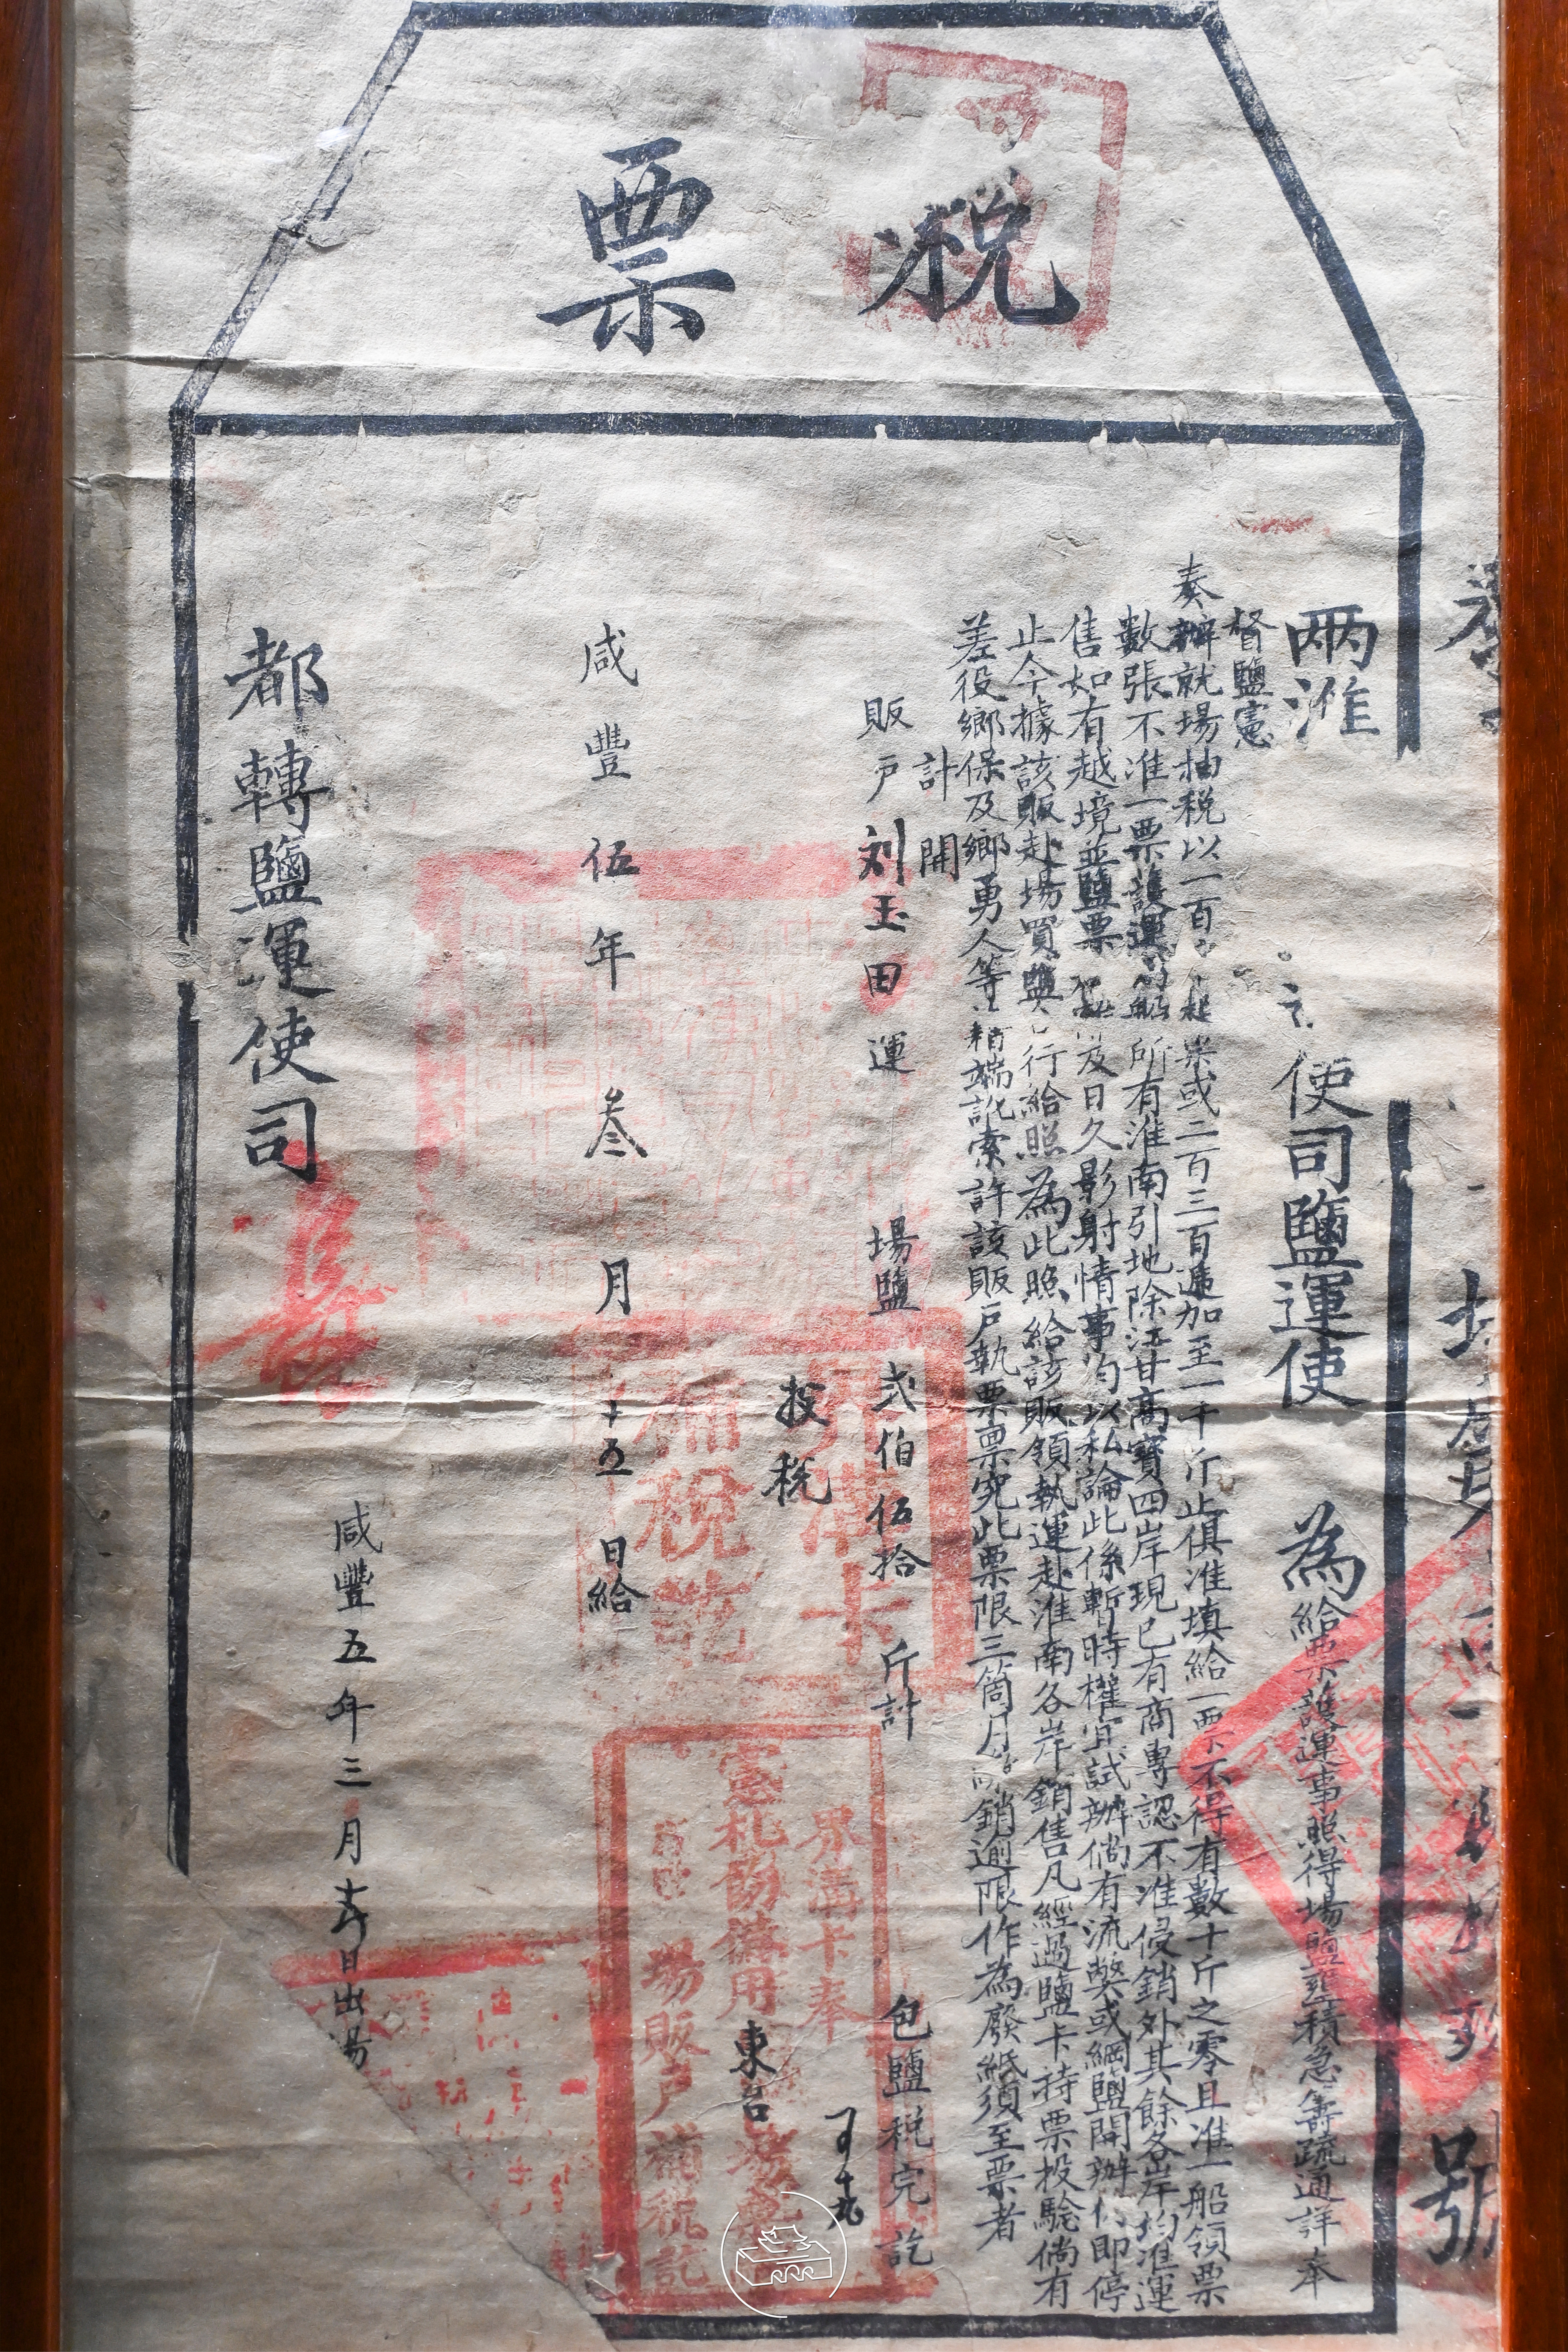 稅票
兩淮
使司鹽運使
為給票護運事照得場鹽壅積急籌疏通詳奉
督鹽憲
奏辦就場抽稅以一百
起票或二百三百遞加至一千斤止俱准填給一票不得有數十斤之零且准一船領票
數張不准一票護運
船所有淮南引地除江甘高寶四岸現已有商專認不准侵銷外其餘各岸均准運
售如有越境並鹽票
及日久影射情事均以私論此係暫時權宜試辦倘有流弊或綱鹽開辦
即停
止今據該販赴場買鹽
行給照為此照給該販領執運赴淮南各岸銷售凡經過鹽卡持票投驗倘有
差役鄉保及鄉勇人等
藉端訛索許該販戶執票稟究此票限三箇月
銷逾限作為廢紙須至票者
計開
販戶刘玉田運
場鹽弍伯伍拾
斤計
包鹽稅完訖
投稅
東台
界溝卡
補稅訖
界溝卡奉
憲札飭備用
場販戶補稅訖
咸豐伍年叁月
五日給
咸豐五年三月
日出場
都轉鹽運使司
號